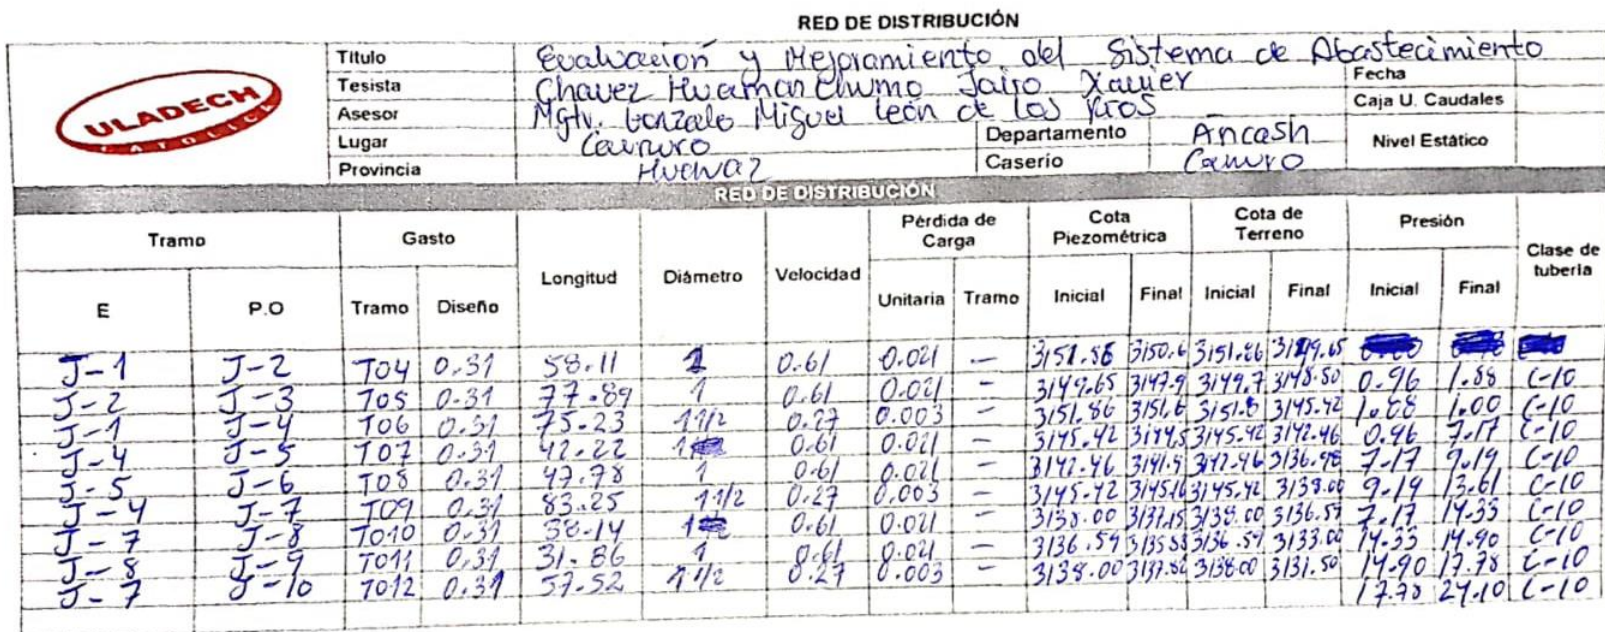 RED DE DISTRIBUCIÓN
ULADECH
CATOLICA
Título Evaluación y Mejoramiento del Sistema de Abastecimiento
Tesista Chavez Huaman Chumo Jairo Xavier Fecha
Asesor Mgtr. Gonzalo Miguel León de los Ríos Caja U. Caudales
Lugar Departamento Ancash Nivel Estático
Provincia Caserio
RED DE DISTRIBUCIÓN
Tramo Gasto Longitud Diámetro Velocidad Pérdida de Carga Cota Piezométrica Cota de Terreno Presión Clase de tubería
E P.O Tramo Diseño Unitaria Tramo Inicial Final Inicial Final Inicial Final
J-1 J-2 T04 0.31 58.11 1 0.61 0.021 — 3151.86 3150.6 3151.86 3149.65
J-2 J-3 T05 0.31 77.89 1 0.61 0.021 — 3149.65 3147.9 3149.7 3148.50 0.96 1.88 C-10
J-1 J-4 T06 0.31 75.23 1 1/2 0.27 0.003 — 3151.86 3151.6 3151.8 3145.42 1.88 1.00 C-10
J-4 J-5 T07 0.31 42.22 1 0.61 0.021 — 3145.42 3144.5 3145.42 3142.46 0.96 7.17 C-10
J-5 J-6 T08 0.31 47.78 1 0.61 0.021 — 3142.46 3141.4 3142.46 3136.98 7.17 9.19 C-10
J-4 J-7 T09 0.31 83.25 1 1/2 0.27 0.003 — 3145.42 3145.16 3145.42 3138.00 9.19 13.61 C-10
J-7 J-8 T010 0.31 38.14 1 0.61 0.021 — 3138.00 3137.15 3138.00 3136.59 7.17 14.33 C-10
J-8 J-9 T011 0.31 31.86 1 0.61 0.021 — 3136.59 3135.88 3136.59 3133.00 14.33 14.90 C-10
J-7 J-10 T012 0.31 57.52 1 1/2 0.27 0.003 — 3138.00 3137.82 3138.00 3131.50 14.90 17.78 C-10
17.78 24.10 C-10